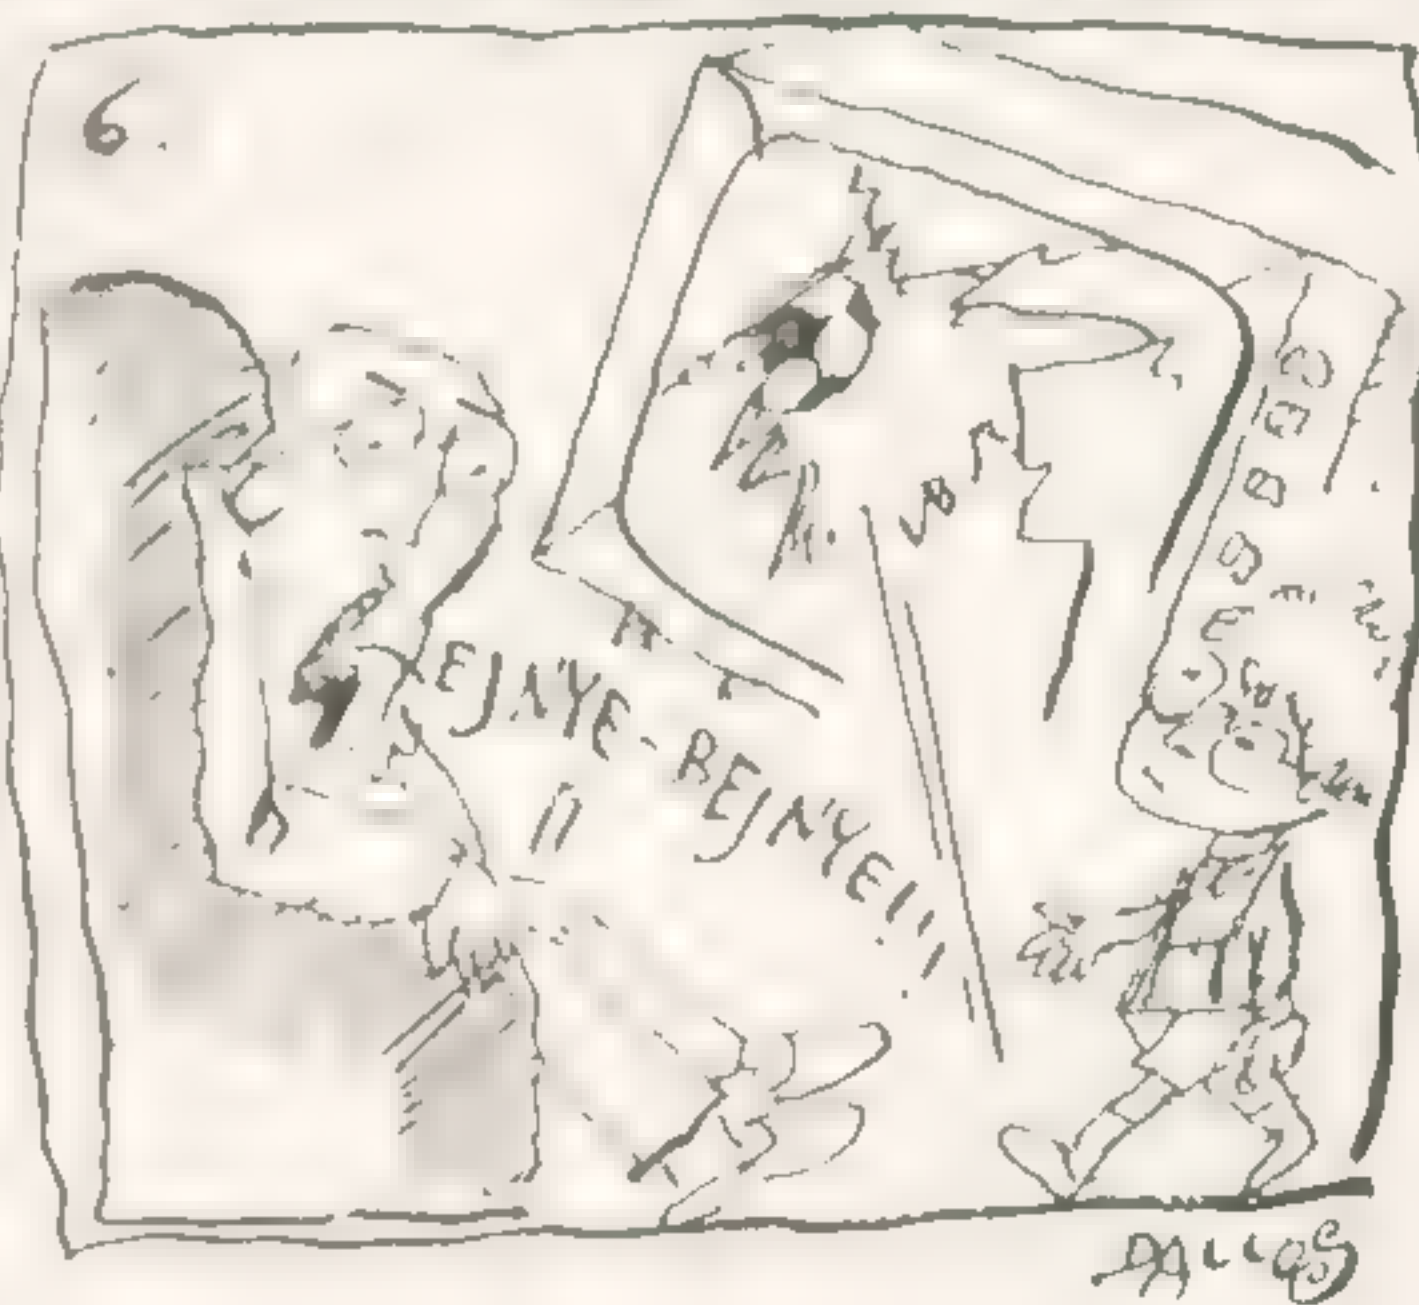 6.
EJNYE-BEJNYE!!!
DALLOS